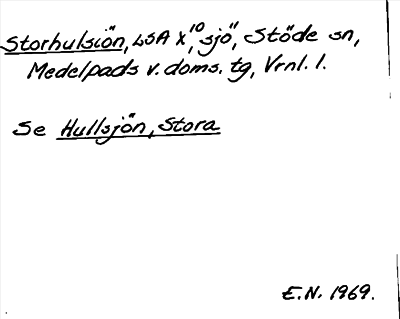 Storhulsiön, LSA X, 10 sjö, Stöde sn,
Medelpads v. doms. tg, Vrnl. l.
Se Hullsjön, Stora
E.N. 1969.